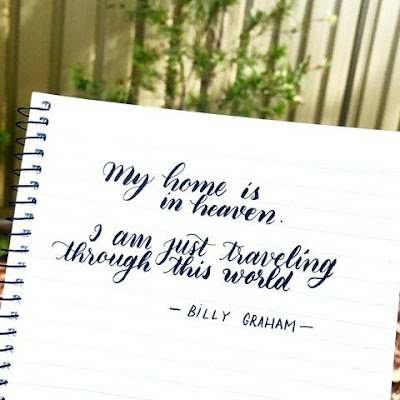 My home is
in heaven.
I am just traveling
through this world
- BILLY GRAHAM -